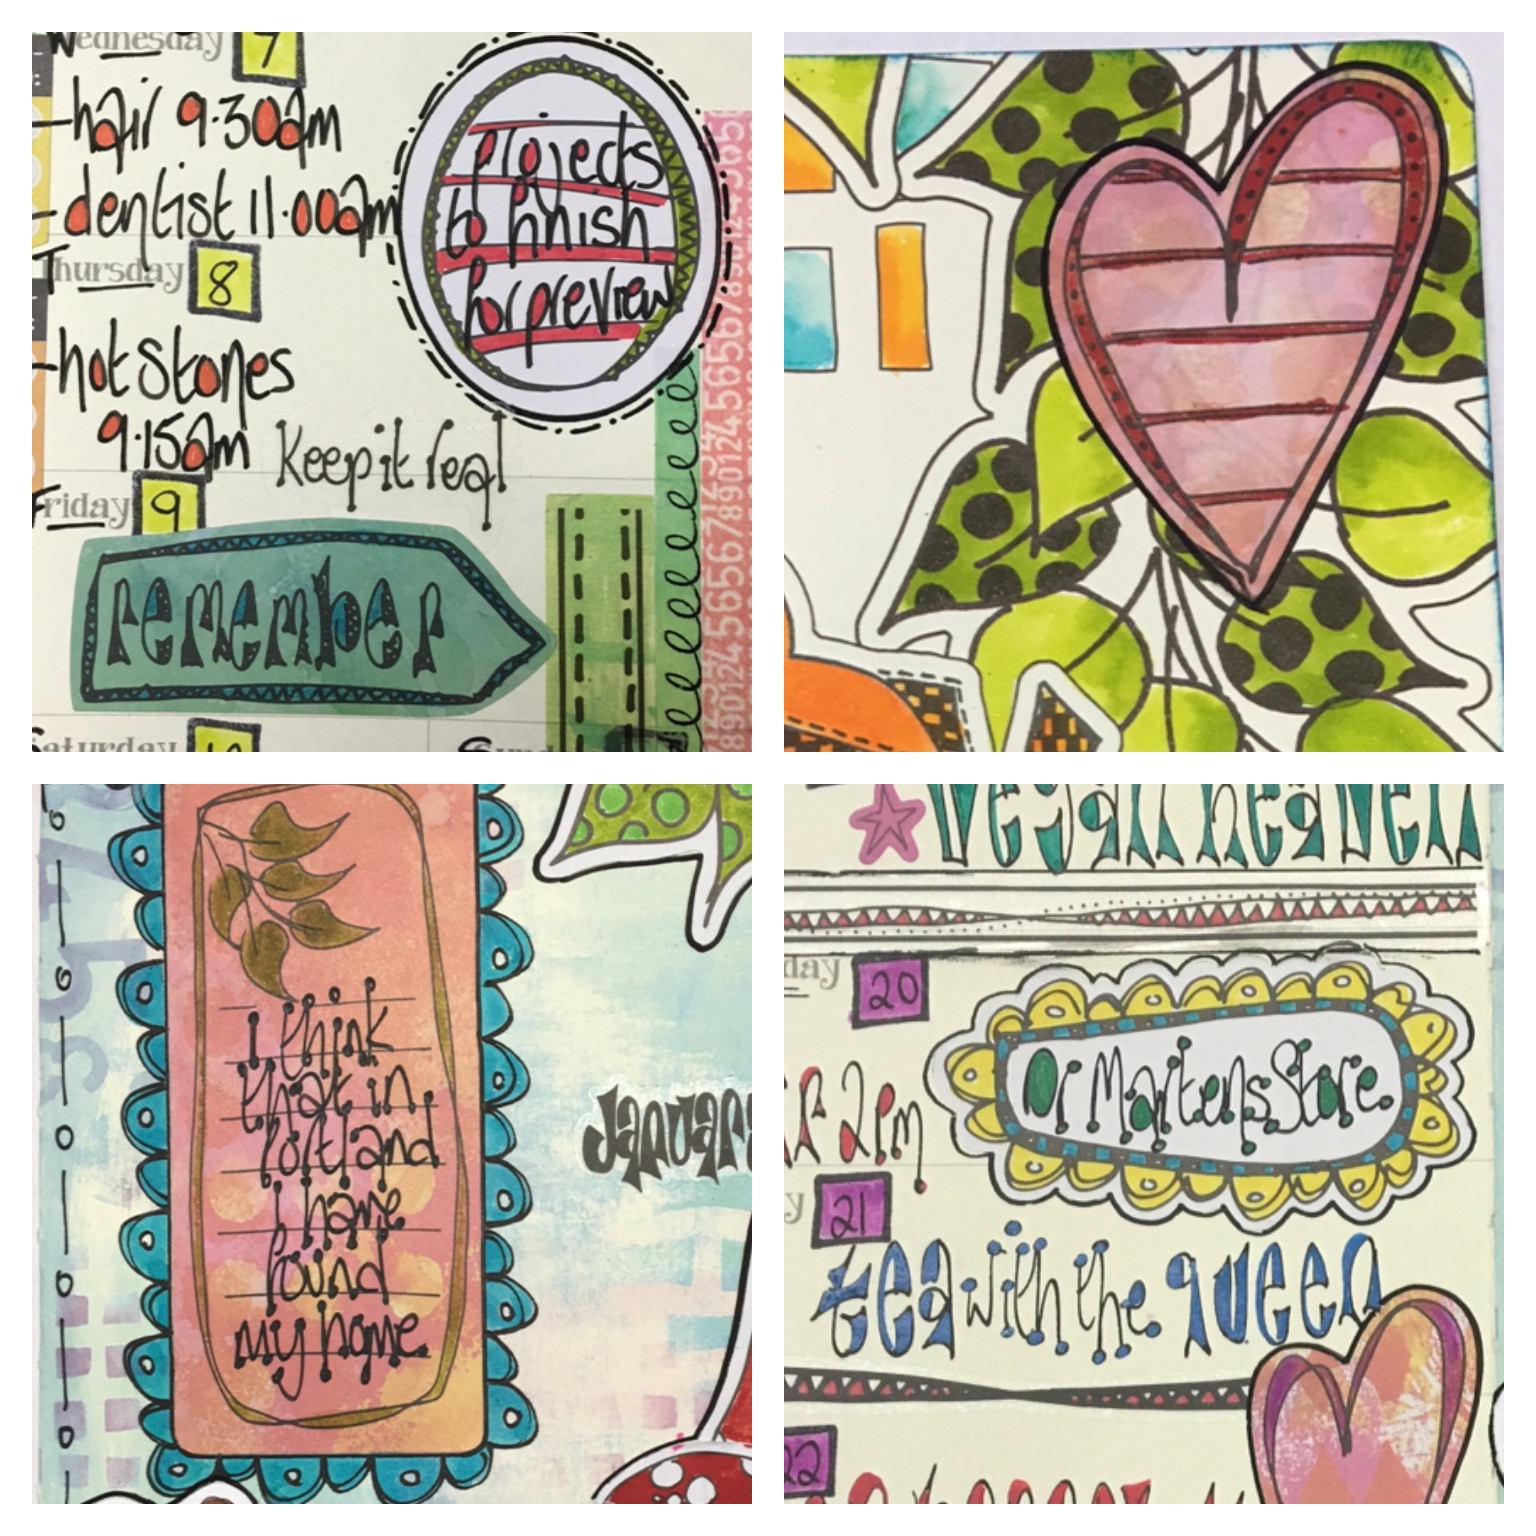 Wednesday 7
hair 9.30am
dentist 11.00am
Thursday 8
hot stones
9.15am
Keep it real
Friday 9
remember
Saturday
projects
to finish
for preview
i think
that in
Portland
i have
found
my home.
January
vegan heaven
day 20
2pm
Dr Martens Store.
21
tea with the queen
22